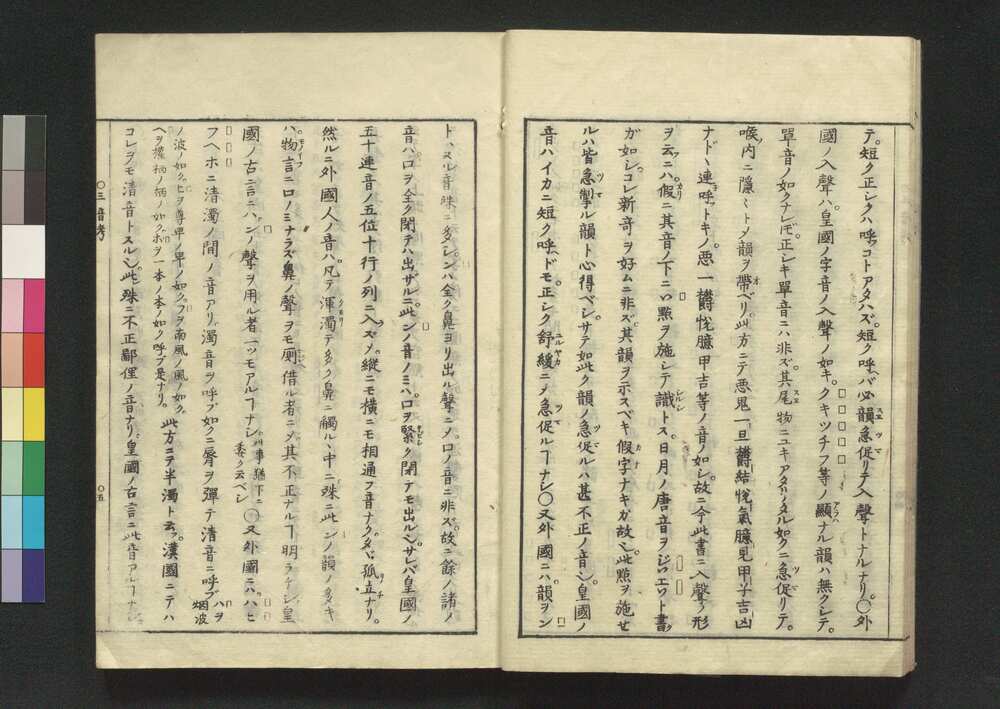 テ短ク正シクハ呼ブコトアタハズ。短ク呼ベバ必韻急促リテ入聲トナルナリ。〇外
國ノ入聲ハ。皇國ノ字音ノ入聲ノ如キ。クキツチフ等ノ顯ナル韻ハ無クシテ。
單音ノ如クナレドモ。正シキ單音ニハ非ズ。其尾物ニユキアタリタル如クニ急促リテ。
喉内ニ隱々トメ韻ヲ帶ベリ。此方ニテ悪鬼一旦欝結悦氣臆見甲子吉凶
ナドヽ連呼トキノ。悪一欝悦臆甲吉等ノ音ノ如シ。故ニ今此書ニ入聲ノ形
ヲ云ニハ。假ニ其音ノ下ニツ點ヲ施シテ識トス。日月ノ唐音ヲジツエツト書
ガ如シ。コレ新奇ヲ好ムニ非ズ。其韻ヲ示スベキ假字ナキガ故也。此點ヲ施セ
ルハ皆急掣ル韻ト心得ベシ。サテ如此ク韻ノ急促ルハ甚不正ノ音也。皇國ノ
音ハイカニ短ク呼ベドモ。正シク舒緩ニメ急促ルヿナシ〇又外國ニハ。韻ヲン
ト。ハヌル音殊ニ多シ。ンハ全ク鼻ヨリ出ル聲ニメ。口ノ音ニ非ズ。故ニ餘ノ諸ノ
音ハ。口ヲ全ク閉テハ出ザルニ。此ンノ音ノミハ。口ヲ緊ク閉テモ出ル也。サレバ皇國ノ
五十連音ノ五位十行ノ列ニ入ズメ。縱ニモ横ニモ相通フ音ナク。タヾ孤立ナリ。
然ルニ外國人ノ音ハ。凡テ渾濁テ多ク鼻ニ觸ルヽ中ニ。殊ニ此ンノ韻ノ多キ
ハ。物言ニ口ノミナラズ鼻ノ聲ヲモ厠借ル者ニメ。其不正ナルヿ明ラケシ。皇
國ノ古言ニハ。ンノ聲ヲ用ル者一ツモアルヿナシ此事猶下ニ委ク云ベシ〇又外國ニハ。ハヒ
フヘホニ清濁ノ間ノ音アリ。濁音ヲ呼ブ如クニ脣ヲ彈テ清音ニ呼ブハヲ烟波
ノ波ノ如ク。ヒヲ尊卑ノ卑ノ如ク。フヲ南風ノ風ノ如ク。ヘヲ權柄ノ柄ノ如ク。ホヲ一本ノ本ノ如ク呼ブ是ナリ。此方ニテ半濁ト云フ。漢國ニテハ
コレヲモ清音トスル也。此殊ニ不正鄙俚ノ音ナリ。皇國ノ古言ニ此音アルヿナシ。
〇三音考
〇五